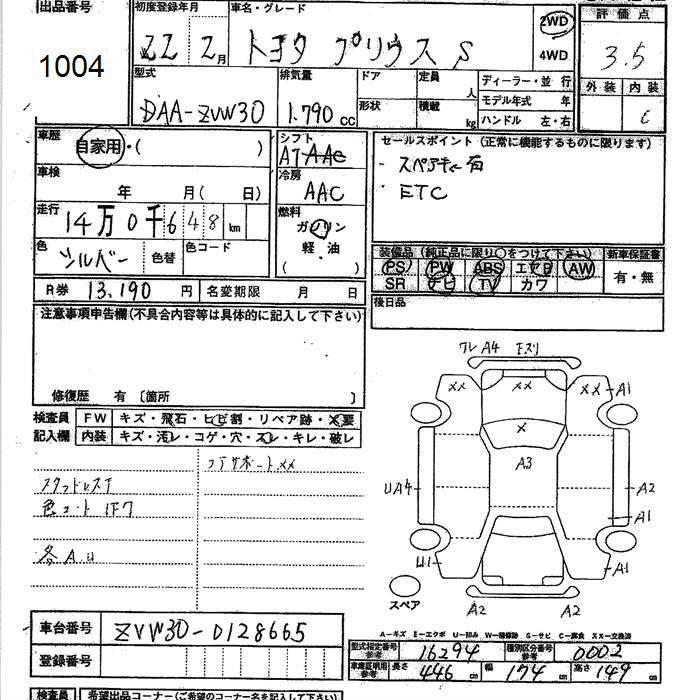 出品番号
1004
初度登録年月
22 2月
車名・グレード
トヨタ プリウス S
2WD
4WD
評価点
3.5
外装 内装
C
型式
DAA-ZVW30
排気量
1.790 cc
ドア
形状
定員
人
積載
kg
ディーラー・並 行
モデル年式 年
ハンドル 左・右
車歴
自家用・( )
シフト
AT AAC
車検
年 月(日)
冷房
AAC
走行
14万0千648km
燃料
ガソリン
軽・油
( )
色
シルバー
色替
色コード
セールスポイント (正常に機能するものに限ります)
・スペアキー有
・ETC
装備品 (純正品に限り○をつけて下さい)
PS PW ABS エアB AW
SR ナビ TV カワ
新車保証書
有・無
R券 13,190 円
名変期限 月 日
後日品
注意事項申告欄(不具合内容等は具体的に記入して下さい)
修復歴 有 〔箇所 〕
検査員
記入欄
FW キズ・飛石・ヒビ割・リペア跡・X要
内装 キズ・汚レ・コゲ・穴・スレ・キレ・破レ
コアサポートXX
スタッドレスT
色コード 1F7
各A.U
ワレ A4 Eズリ
XX XX XX A1
X
A3
UA4
A2
A1
U1
A1
スペア
A2 A2
A-キズ E-エクボ U-凹み W-補修跡 S-サビ C-腐食 XX-交換済
車台番号
ZVW30-0128665
登録番号
型式指定番号 参考 16294
種別区分番号 参考 0002
車庫証明用 参考 長さ 446 cm 幅 174 cm 高さ 149 cm
検査員
希望出品コーナー(ご希望のコーナー名を記入して下さい)